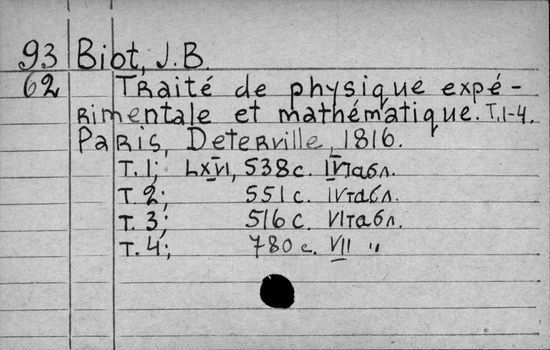 93 Biot, J.B.
62 Traité de physique expé-
rimentale et mathématique. T.1-4.
Paris, Deterville, 1816.
T. 1; LXVI, 538 с. IV табл.
T. 2; 551 с. IV табл.
T. 3; 516 с. VI табл.
T. 4; 780 с. VII "